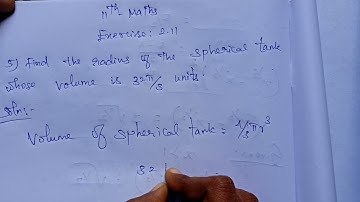 11th Maths
Exercise: 2.11
5) Find the radius of the spherical tank
whose volume is 32π/3 units.
Soln:-
Volume of spherical tank = 4/3 πr³
32